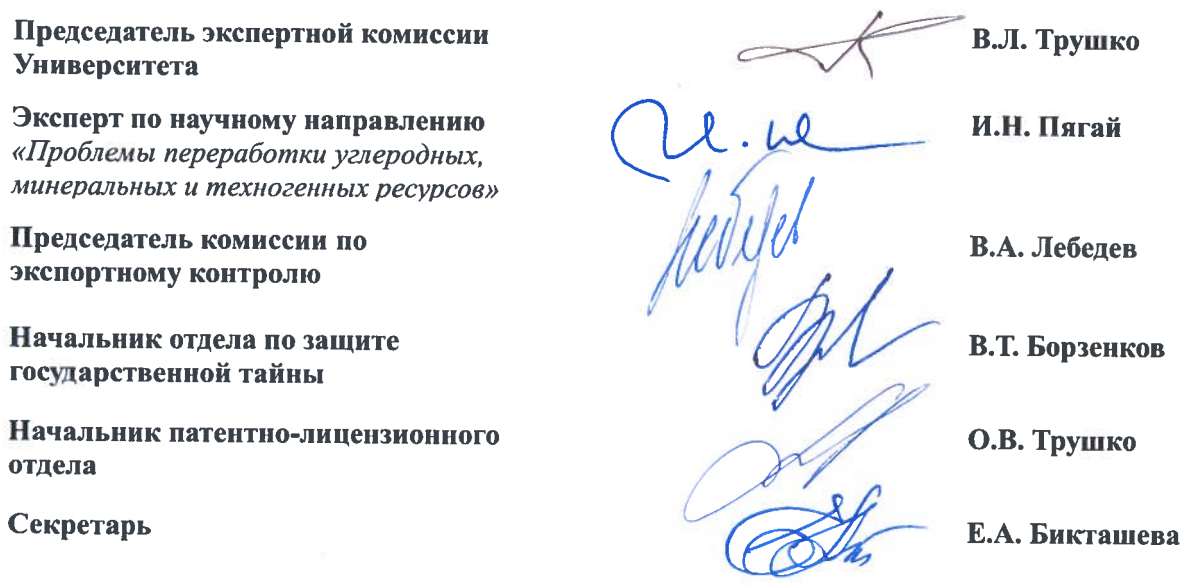 Председатель экспертной комиссии
Университета
В.Л. Трушко
Эксперт по научному направлению
«Проблемы переработки углеродных,
минеральных и техногенных ресурсов»
И.Н. Пягай
Председатель комиссии по
экспортному контролю
В.А. Лебедев
Начальник отдела по защите
государственной тайны
В.Т. Борзенков
Начальник патентно-лицензионного
отдела
О.В. Трушко
Секретарь
Е.А. Бикташева